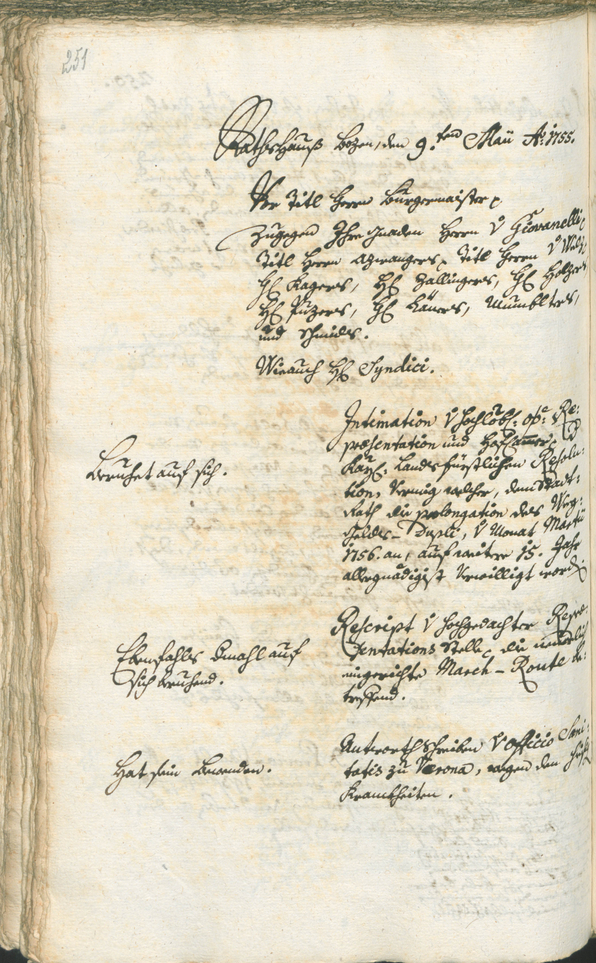 251
Rathshauß Bozen, den 9.ten Maii Ao. 1755.
Vor Titl Herrn Burgermaister
Zugegen Ihro Gnaden Herrn v Giovanelli,
Titl Herrn
H Kagerer, H Zallingers, H Holzer
H Puzers, H
und Schmids.
Wie auch H Syndici.
Beruhet auf sich.
Intimation v hochlöbl: o:ö: Re:
praesentation und Hofcammer,
Kays. Landesfürstlichen Resolu:
tion, Vermög welcher, dem Stadt:
Rath die prolongation des Weg:
geldes-Dupli, v Monat Martii
1756. an, auf weitere 15. Jahr
allergnädigist verwilliget worden
Ebenfahls Emahl auf
sich beruhend.
Rescript v hochgedachter Repre:
sentations Stelle, die neuerlich
eingerichte March-Route be:
treffend.
Hat sein Bewenden.
Antworthschreiben v officio Sani:
tatis zu Verona, wegen den
Krankheiten.